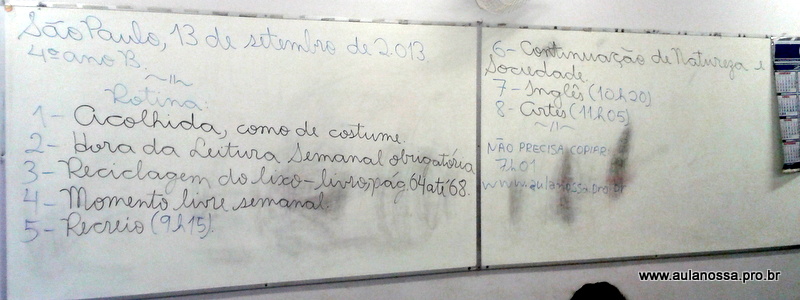 São Paulo, 13 de setembro de 2013.
4º ano B.
~//~
Rotina:
1- Acolhida, como de costume.
2- Hora da Leitura Semanal obrigatória
3- Reciclagem do lixo-livro,pág.64 até 68.
4- Momento livre semanal.
5- Recreio (9h15).
6- Continuação de Natureza e
Sociedade.
7- Inglês (10h20)
8- Artes (11h05)
~//~
NÃO PRECISA COPIAR:
7h01
www.aulanossa.pro.br
www.aulanossa.pro.br